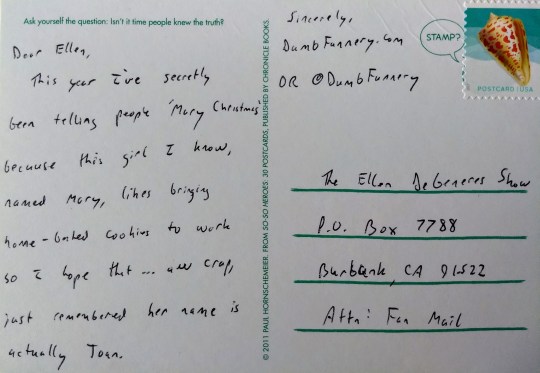 Ask yourself the question: Isn't it time people knew the truth?
Dear Ellen,
This year I've secretly
been telling people "Mary Christmas"
because this girl I know,
named Mary, likes bringing
home-baked cookies to work
so I hope that... aww crap,
just remembered her name is
actually Joan.
© 2011 PAUL HORNSCHEMEIER. FROM SO-SO HEROES. 30 POSTCARDS, PUBLISHED BY CHRONICLE BOOKS.
Sincerely,
DumbFunnery.com
OR @DumbFunnery
STAMP?
POSTCARD USA
The Ellen DeGeneres Show
P.O. Box 7788
Burbank, CA 91522
Attn: Fan Mail